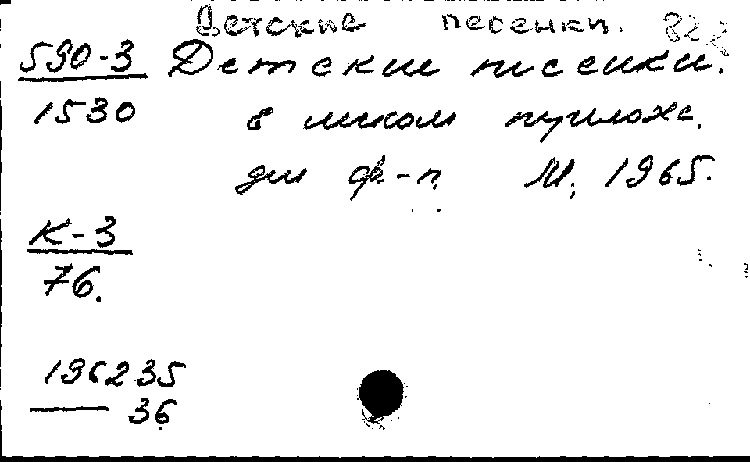 Детские песенки.
590-3 Детские песенки.
1530 в легком прилож.
для ф-п. М., 1965.
К-3
76.
196235
—— 36